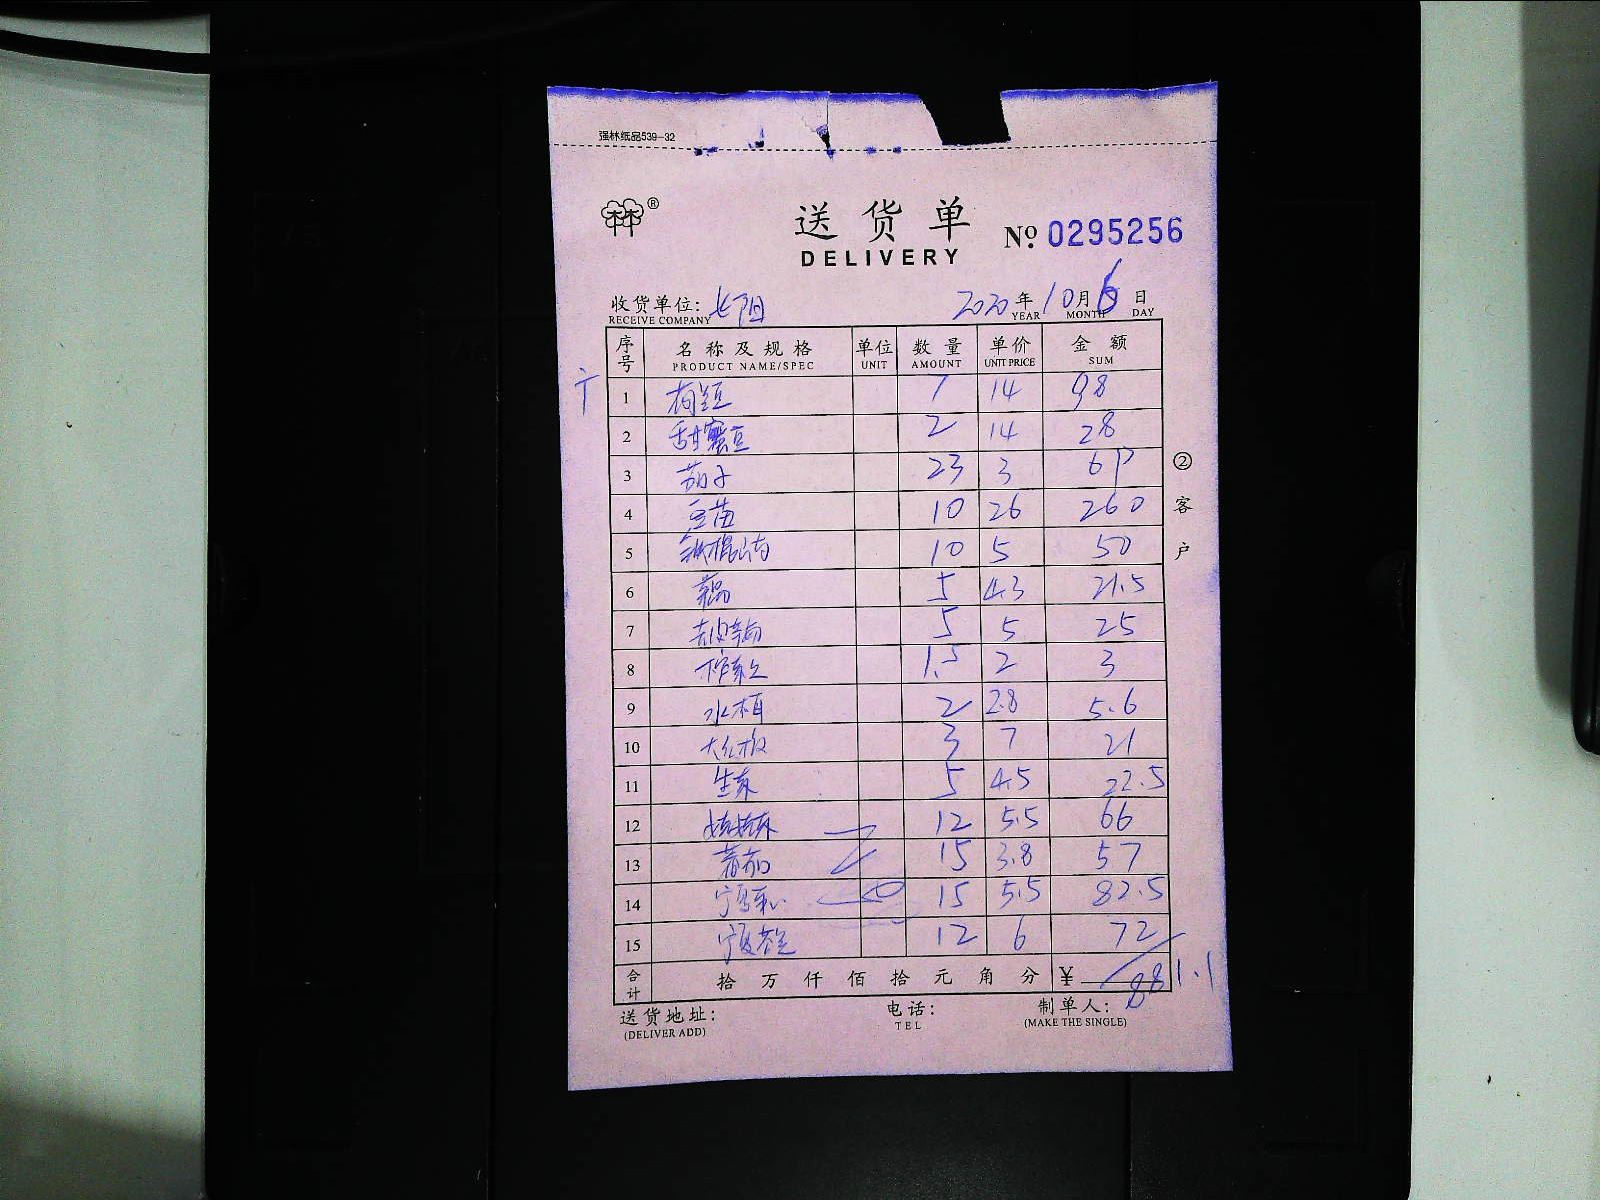 强林纸品539-32
送货单
DELIVERY
№ 0295256
收货单位: 2020年10月6日
RECEIVE COMPANY YEAR MONTH DAY
序号 名称及规格 单位 数量 单价 金额
PRODUCT NAME/SPEC UNIT AMOUNT UNTT PRICE SUM
1 荷豆 7 14 98
2 甜蜜豆 2 14 28
3 茄子 23 3 69
4 豆苗 10 26 260
5 10 5 50
6 5 4.3 21.5
7 5 5 25
8 1.5 2 3
9 2 2.8 5.6
10 大红椒 3 7 21
11 生菜 5 4.5 22.5
12 娃娃菜 12 5.5 66
13 蕃茄 15 3.8 57
14 15 5.5 82.5
15 12 6 72
合计 拾万仟佰拾元角分 ¥ 881.1
送货地址: 电话: 制单人:
(DELIVER ADD) TEL (MAKE THE SINGLE)
②客户